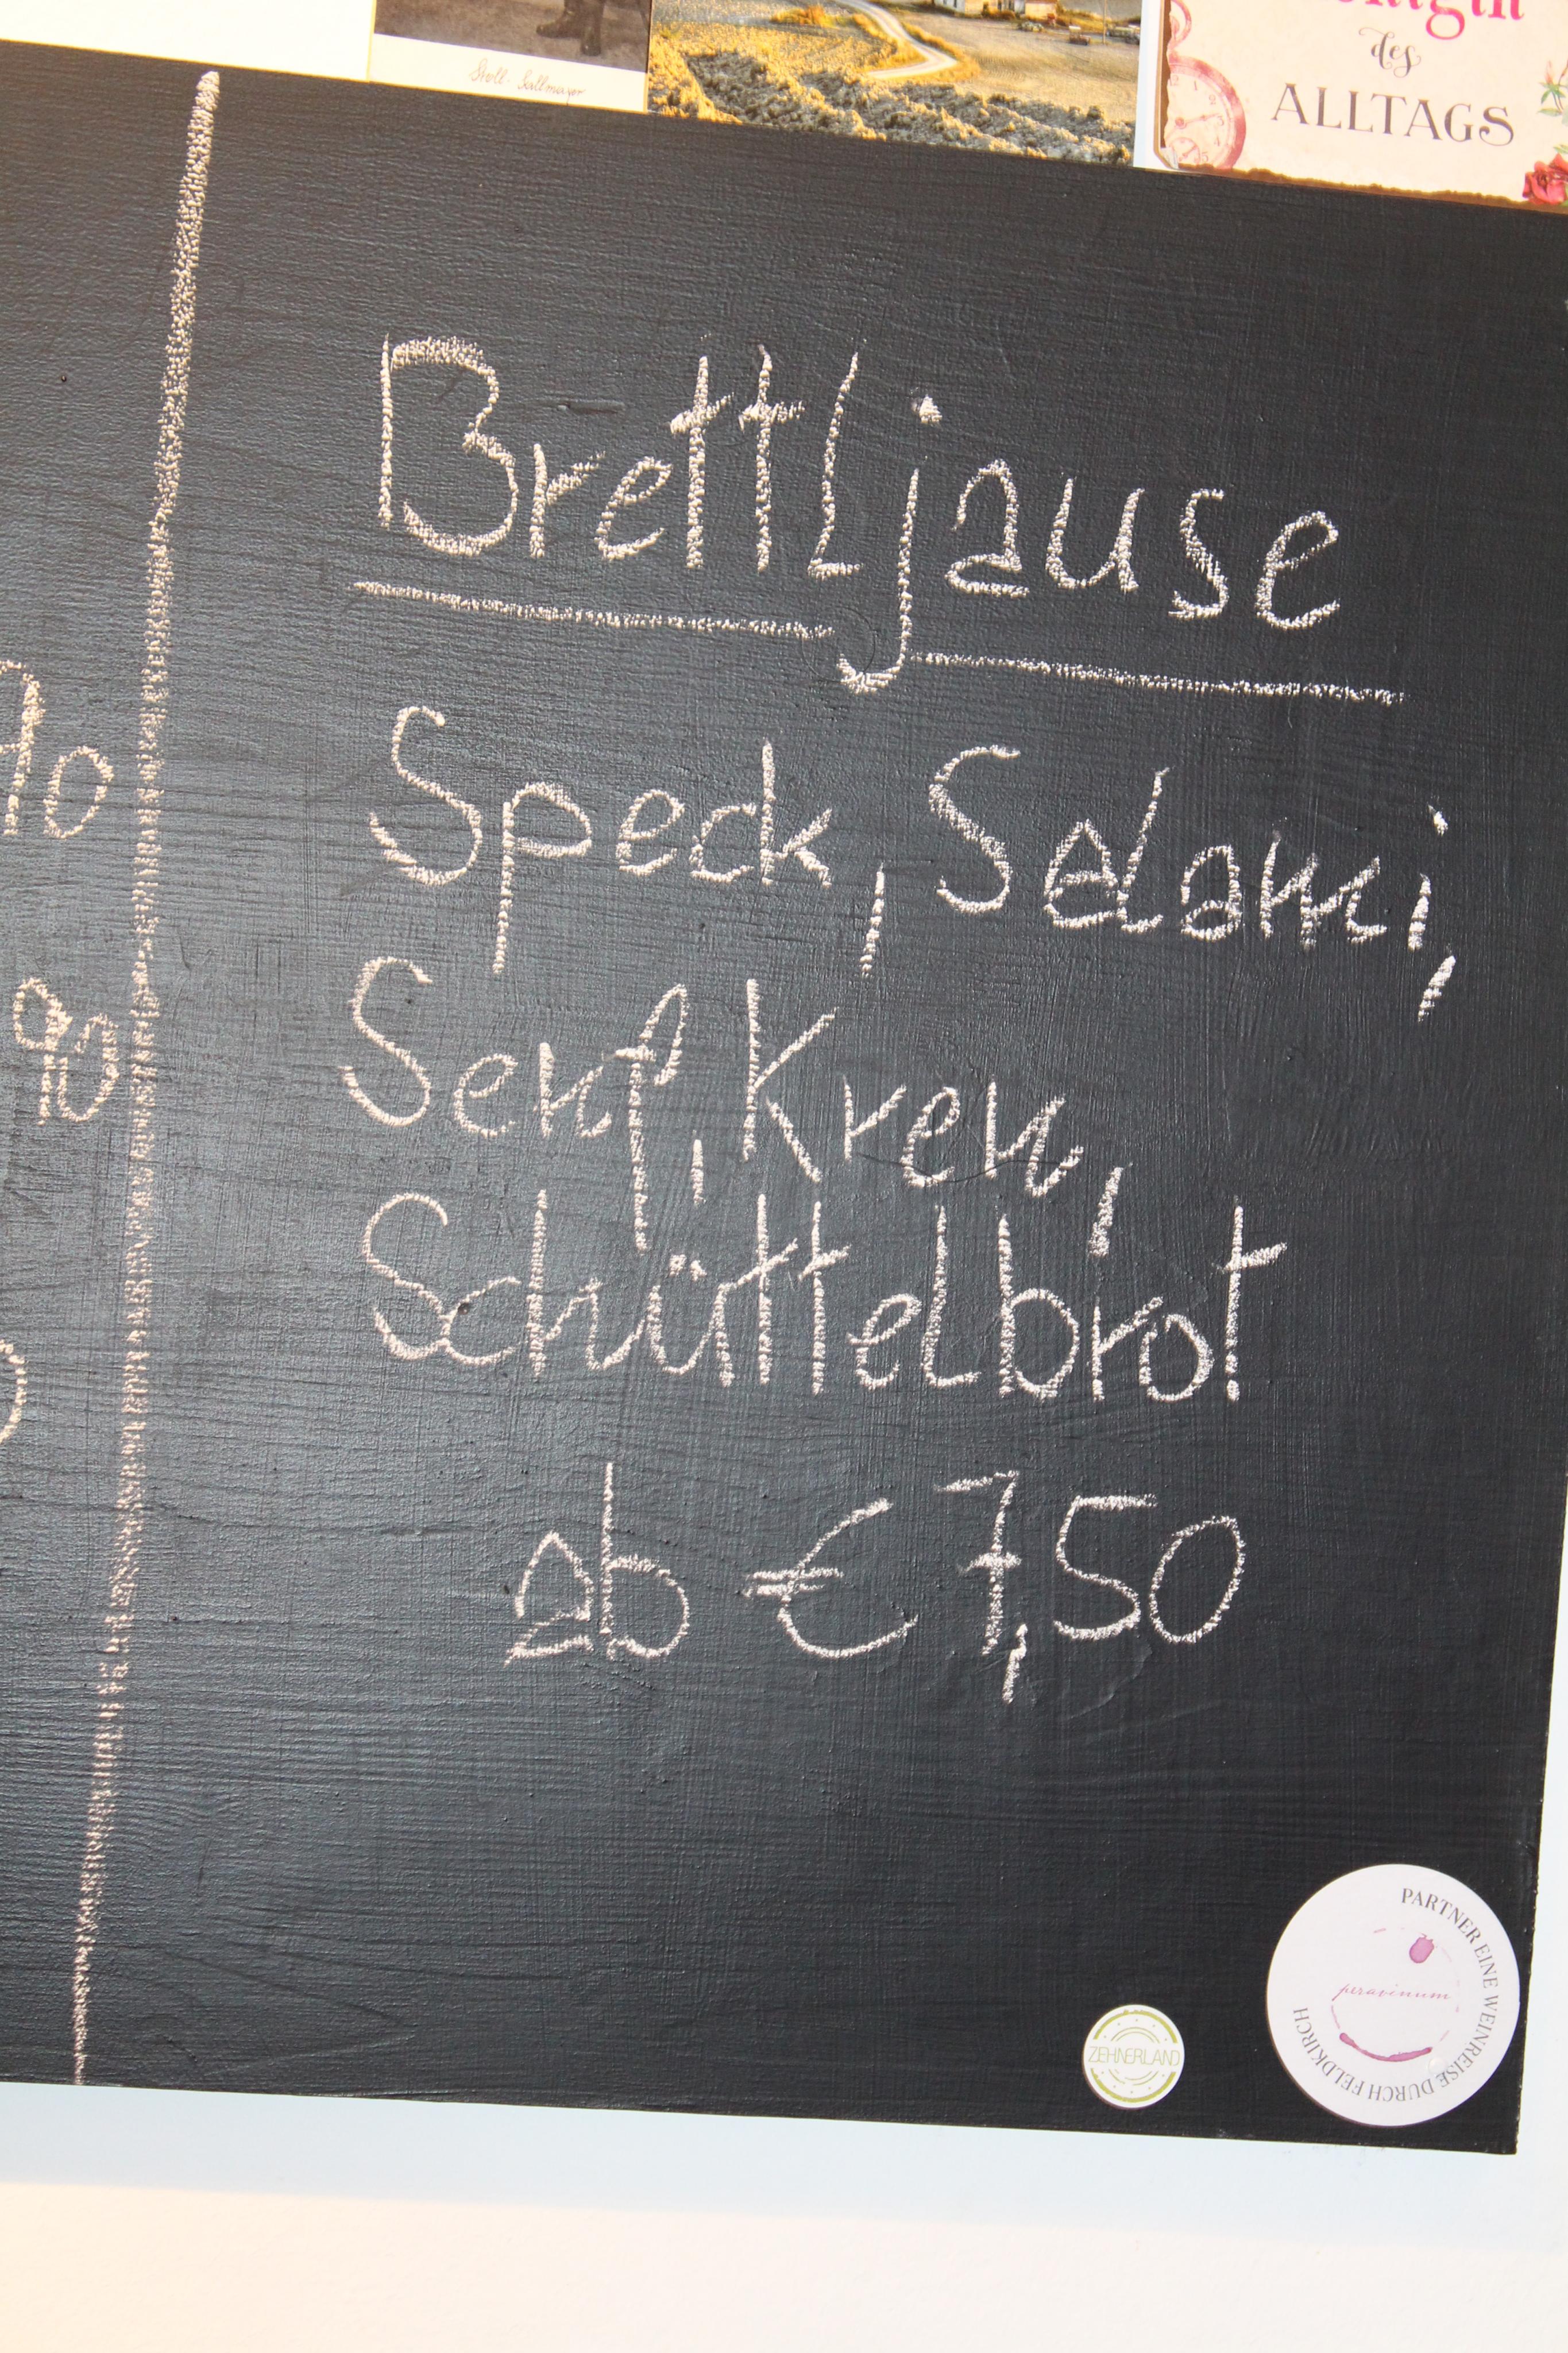 des
ALLTAGS
Brettljause
Speck, Salami,
Senf, Kren,
Schüttelbrot
ab € 7,50
90
ZEHNERLAND
PARTNER EINE WEINREISE DURCH FELDKIRCH
peravinum